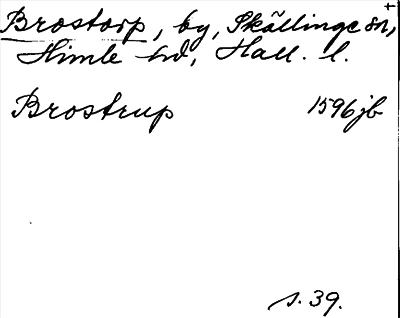 Brostorp, by, Skällinge sn,
Himle hd, Hall. l.
Brostrup 1596 jb
s. 39.